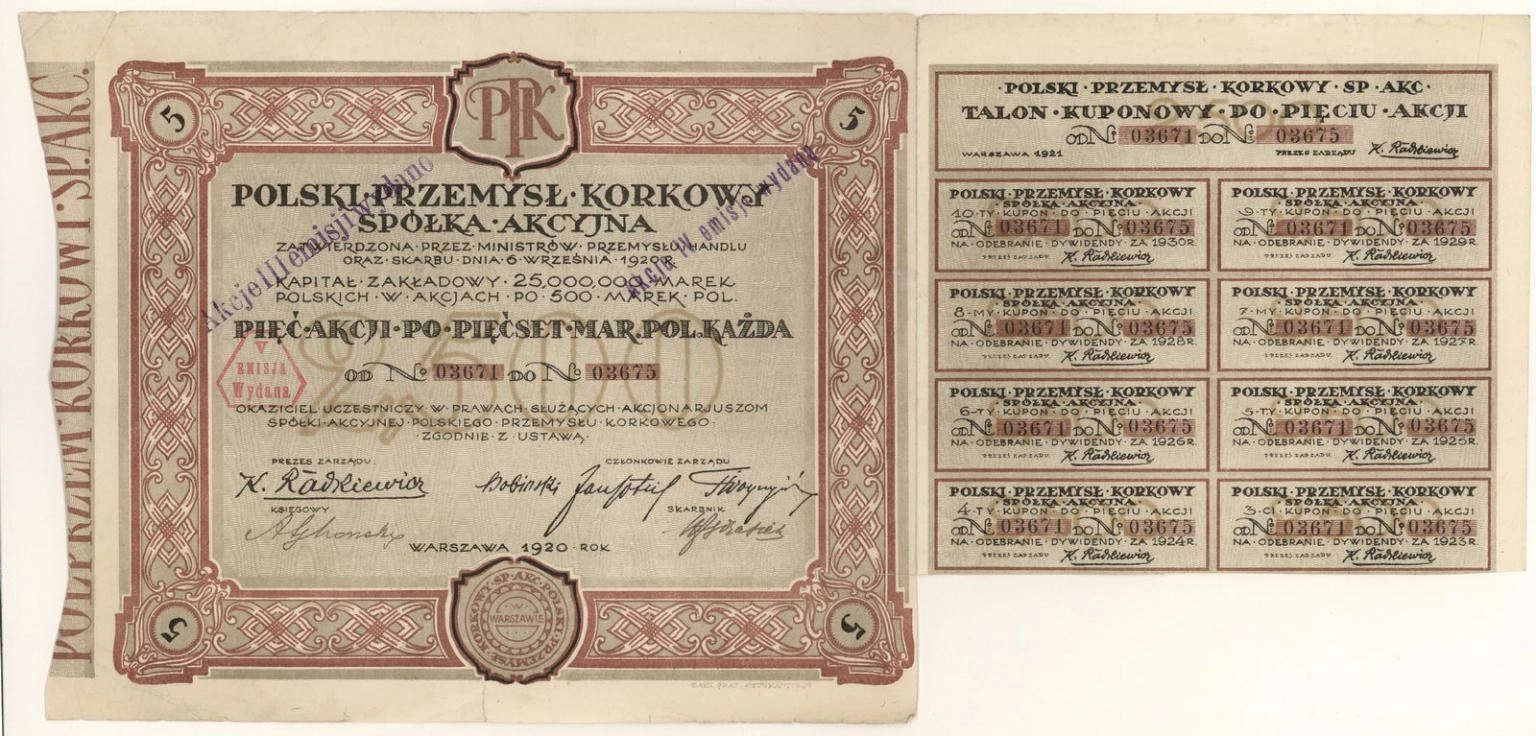 POL.PRZEM.KORKOWY.SP.AKC.
PPK
5
5
POLSKI·PRZEMYSŁ·KORKOWY
SPÓŁKA·AKCYJNA
ZATWIERDZONA·PRZEZ·MINISTRÓW·PRZEMYSŁU I HANDLU
ORAZ·SKARBU·DNIA·6·WRZEŚNIA·1920R.
KAPITAŁ·ZAKŁADOWY·25,000,000 MAREK
POLSKICH·W·AKCJACH·PO·500·MAREK·POL.
Akcje III emisji wydano
Akcje IV emisji wydano
PIĘĆ·AKCJI·PO·PIĘĆSET·MAR.POL.KAŻDA
2,500
OD No 03671 DO No 03675
V
EMISJA
Wydana
OKAZICIEL·UCZESTNICZY·W·PRAWACH·SŁUŻĄCYCH·AKCJONARJUSZOM
SPÓŁKI·AKCYJNEJ·POLSKIEGO·PRZEMYSŁU·KORKOWEGO·
·ZGODNIE·Z·USTAWĄ·
PREZES ZARZĄDU:
CZŁONKOWIE ZARZĄDU
K. Radkiewicz
Bobiński
KSIĘGOWY
SKARBNIK
WARSZAWA 1920·ROK
KORKOWY·SP·AKC·POLSKI·PRZEMYSŁ
·W·
WARSZAWIE
5
5
POLSKI·PRZEMYSŁ·KORKOWY·SP·AKC·
TALON·KUPONOWY·DO·PIĘCIU·AKCJI
OD No 03671 DO No 03675
WARSZAWA 1921
PREZES ZARZĄDU
K. Radkiewicz
POLSKI·PRZEMYSŁ·KORKOWY
SPÓŁKA·AKCYJNA·
10-TY·KUPON·DO·PIĘCIU·AKCJI
OD No 03671 DO No 03675
NA·ODEBRANIE·DYWIDENDY·ZA 1930R
PREZES ZARZĄDU
K. Radkiewicz
POLSKI·PRZEMYSŁ·KORKOWY
SPÓŁKA·AKCYJNA·
9-TY·KUPON·DO·PIĘCIU·AKCJI
OD No 03671 DO No 03675
NA·ODEBRANIE·DYWIDENDY·ZA 1929R
PREZES ZARZĄDU
K. Radkiewicz
POLSKI·PRZEMYSŁ·KORKOWY
SPÓŁKA·AKCYJNA·
8-MY·KUPON·DO·PIĘCIU·AKCJI
OD No 03671 DO No 03675
NA·ODEBRANIE·DYWIDENDY·ZA 1928R
PREZES ZARZĄDU
K. Radkiewicz
POLSKI·PRZEMYSŁ·KORKOWY
SPÓŁKA·AKCYJNA·
7-MY·KUPON·DO·PIĘCIU·AKCJI
OD No 03671 DO No 03675
NA·ODEBRANIE·DYWIDENDY·ZA 1927R
PREZES ZARZĄDU
K. Radkiewicz
POLSKI·PRZEMYSŁ·KORKOWY
SPÓŁKA·AKCYJNA·
6-TY·KUPON·DO·PIĘCIU·AKCJI
OD No 03671 DO No 03675
NA·ODEBRANIE·DYWIDENDY·ZA 1926R
PREZES ZARZĄDU
K. Radkiewicz
POLSKI·PRZEMYSŁ·KORKOWY
SPÓŁKA·AKCYJNA·
5-TY·KUPON·DO·PIĘCIU·AKCJI
OD No 03671 DO No 03675
NA·ODEBRANIE·DYWIDENDY·ZA 1925R
PREZES ZARZĄDU
K. Radkiewicz
POLSKI·PRZEMYSŁ·KORKOWY
SPÓŁKA·AKCYJNA·
4-TY·KUPON·DO·PIĘCIU·AKCJI
OD No 03671 DO No 03675
NA·ODEBRANIE·DYWIDENDY·ZA 1924R
PREZES ZARZĄDU
K. Radkiewicz
POLSKI·PRZEMYSŁ·KORKOWY
SPÓŁKA·AKCYJNA·
3-CI·KUPON·DO·PIĘCIU·AKCJI
OD No 03671 DO No 03675
NA·ODEBRANIE·DYWIDENDY·ZA 1923R
PREZES ZARZĄDU
K. Radkiewicz